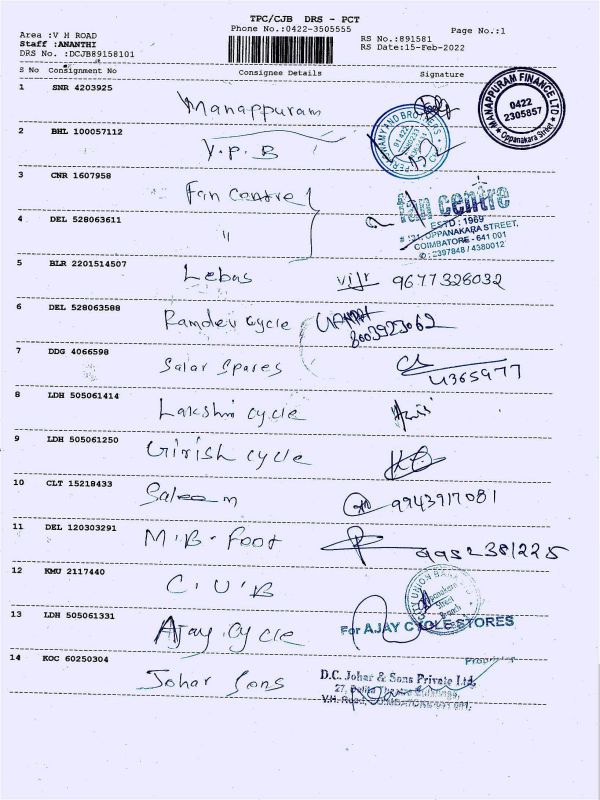 TPC/CJB DRS - PCT
Phone No.:0422-3505555
Page No.:1
Area :V H ROAD
Staff :ANANTHI
DRS No. :DCJB89158101
RS No.:891581
RS Date:15-Feb-2022
S No Consignment No Consignee Details Signature
1 SNR 4203925 Manappuram
MANAPPURAM FINANCE LTD
0422
2305857
Oppanakara Street
2 BHL 100057112 Y.P.B
3 CNR 1607958 Fan Centre
fan centre
ESTD : 1969
# 121, OPPANAKARA STREET,
COIMBATORE - 641 001
✆ : 2397848 / 4380012
4 DEL 528063611 "
5 BLR 2201514507 Lebas 9677328032
6 DEL 528063588 Ramdev cycle 8003923062
7 DDG 4066598 Salar Spares 4365977
8 LDH 505061414 Lakshmi cycle
9 LDH 505061250 Girish cycle
10 CLT 15218433 Saleem 9943917081
11 DEL 120303291 M.B. Foot 9952381225
12 KMU 2117440 C.U.B
13 LDH 505061331 Ajay Cycle
For AJAY CYCLE STORES
Proprietor
14 KOC 60250304 Johar Sons
D.C. Johar & Sons Private Ltd.
V.H. Road, COIMBATORE-641 001.